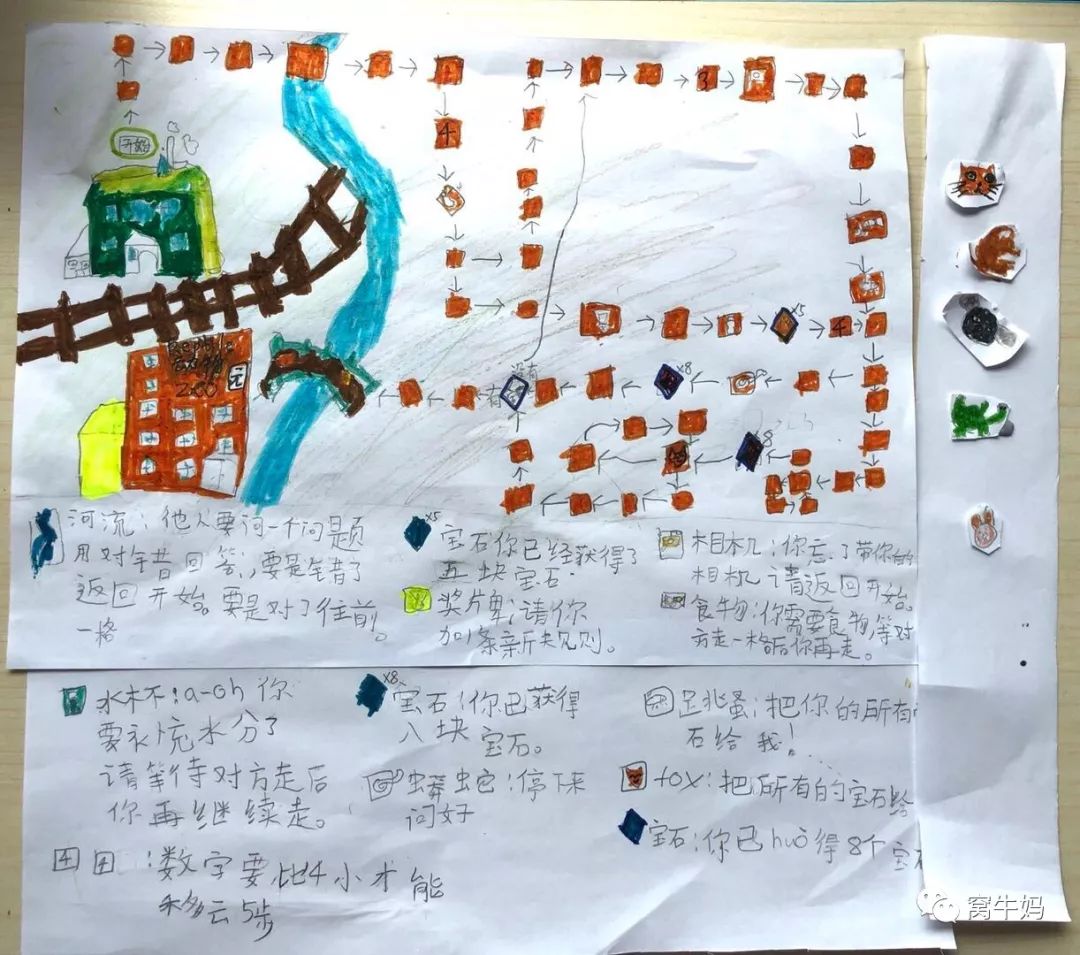 开始
3
4
x5
4
没有
有
x8
x8
200
元
河流：他人要问一个问题
用对错昔回答，要是错了
返回开始。要是对了往前
一格
x5
宝石你已经获得了
五块宝石.
奖牌：请你
加1条新规则。
相机：你忘了带你的
相机 请返回开始。
食物：你需要食物，等对
方走一格后你再走。
水杯：a-oh 你
要补充水分了
请等待对方走后
你再继续走。
4 4：数字要比4小才能
移云5步
x8
宝石：你已获得
八块宝石。
蟒蛇：停下来
问好
跳蚤：把你的所有
石给我！
fox：把所有的宝石给
宝石：你已huò得8个宝石
窝牛妈